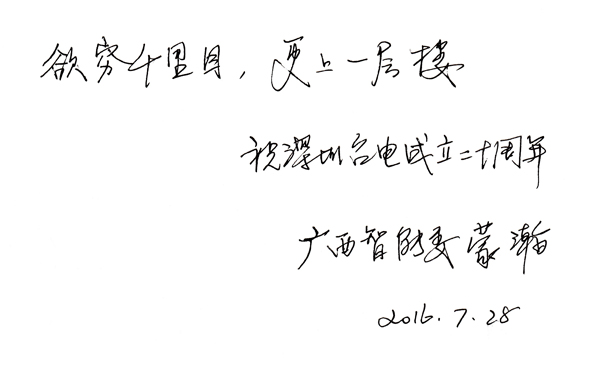 欲穷千里目，更上一层楼
祝深圳台电成立二十周年
广西智能委 蒙瀚
2016.7.28